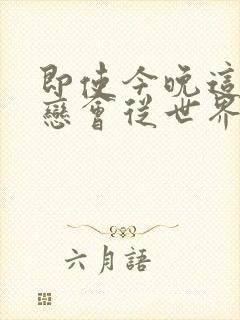 即使今晚這
戀會從世界
六月語